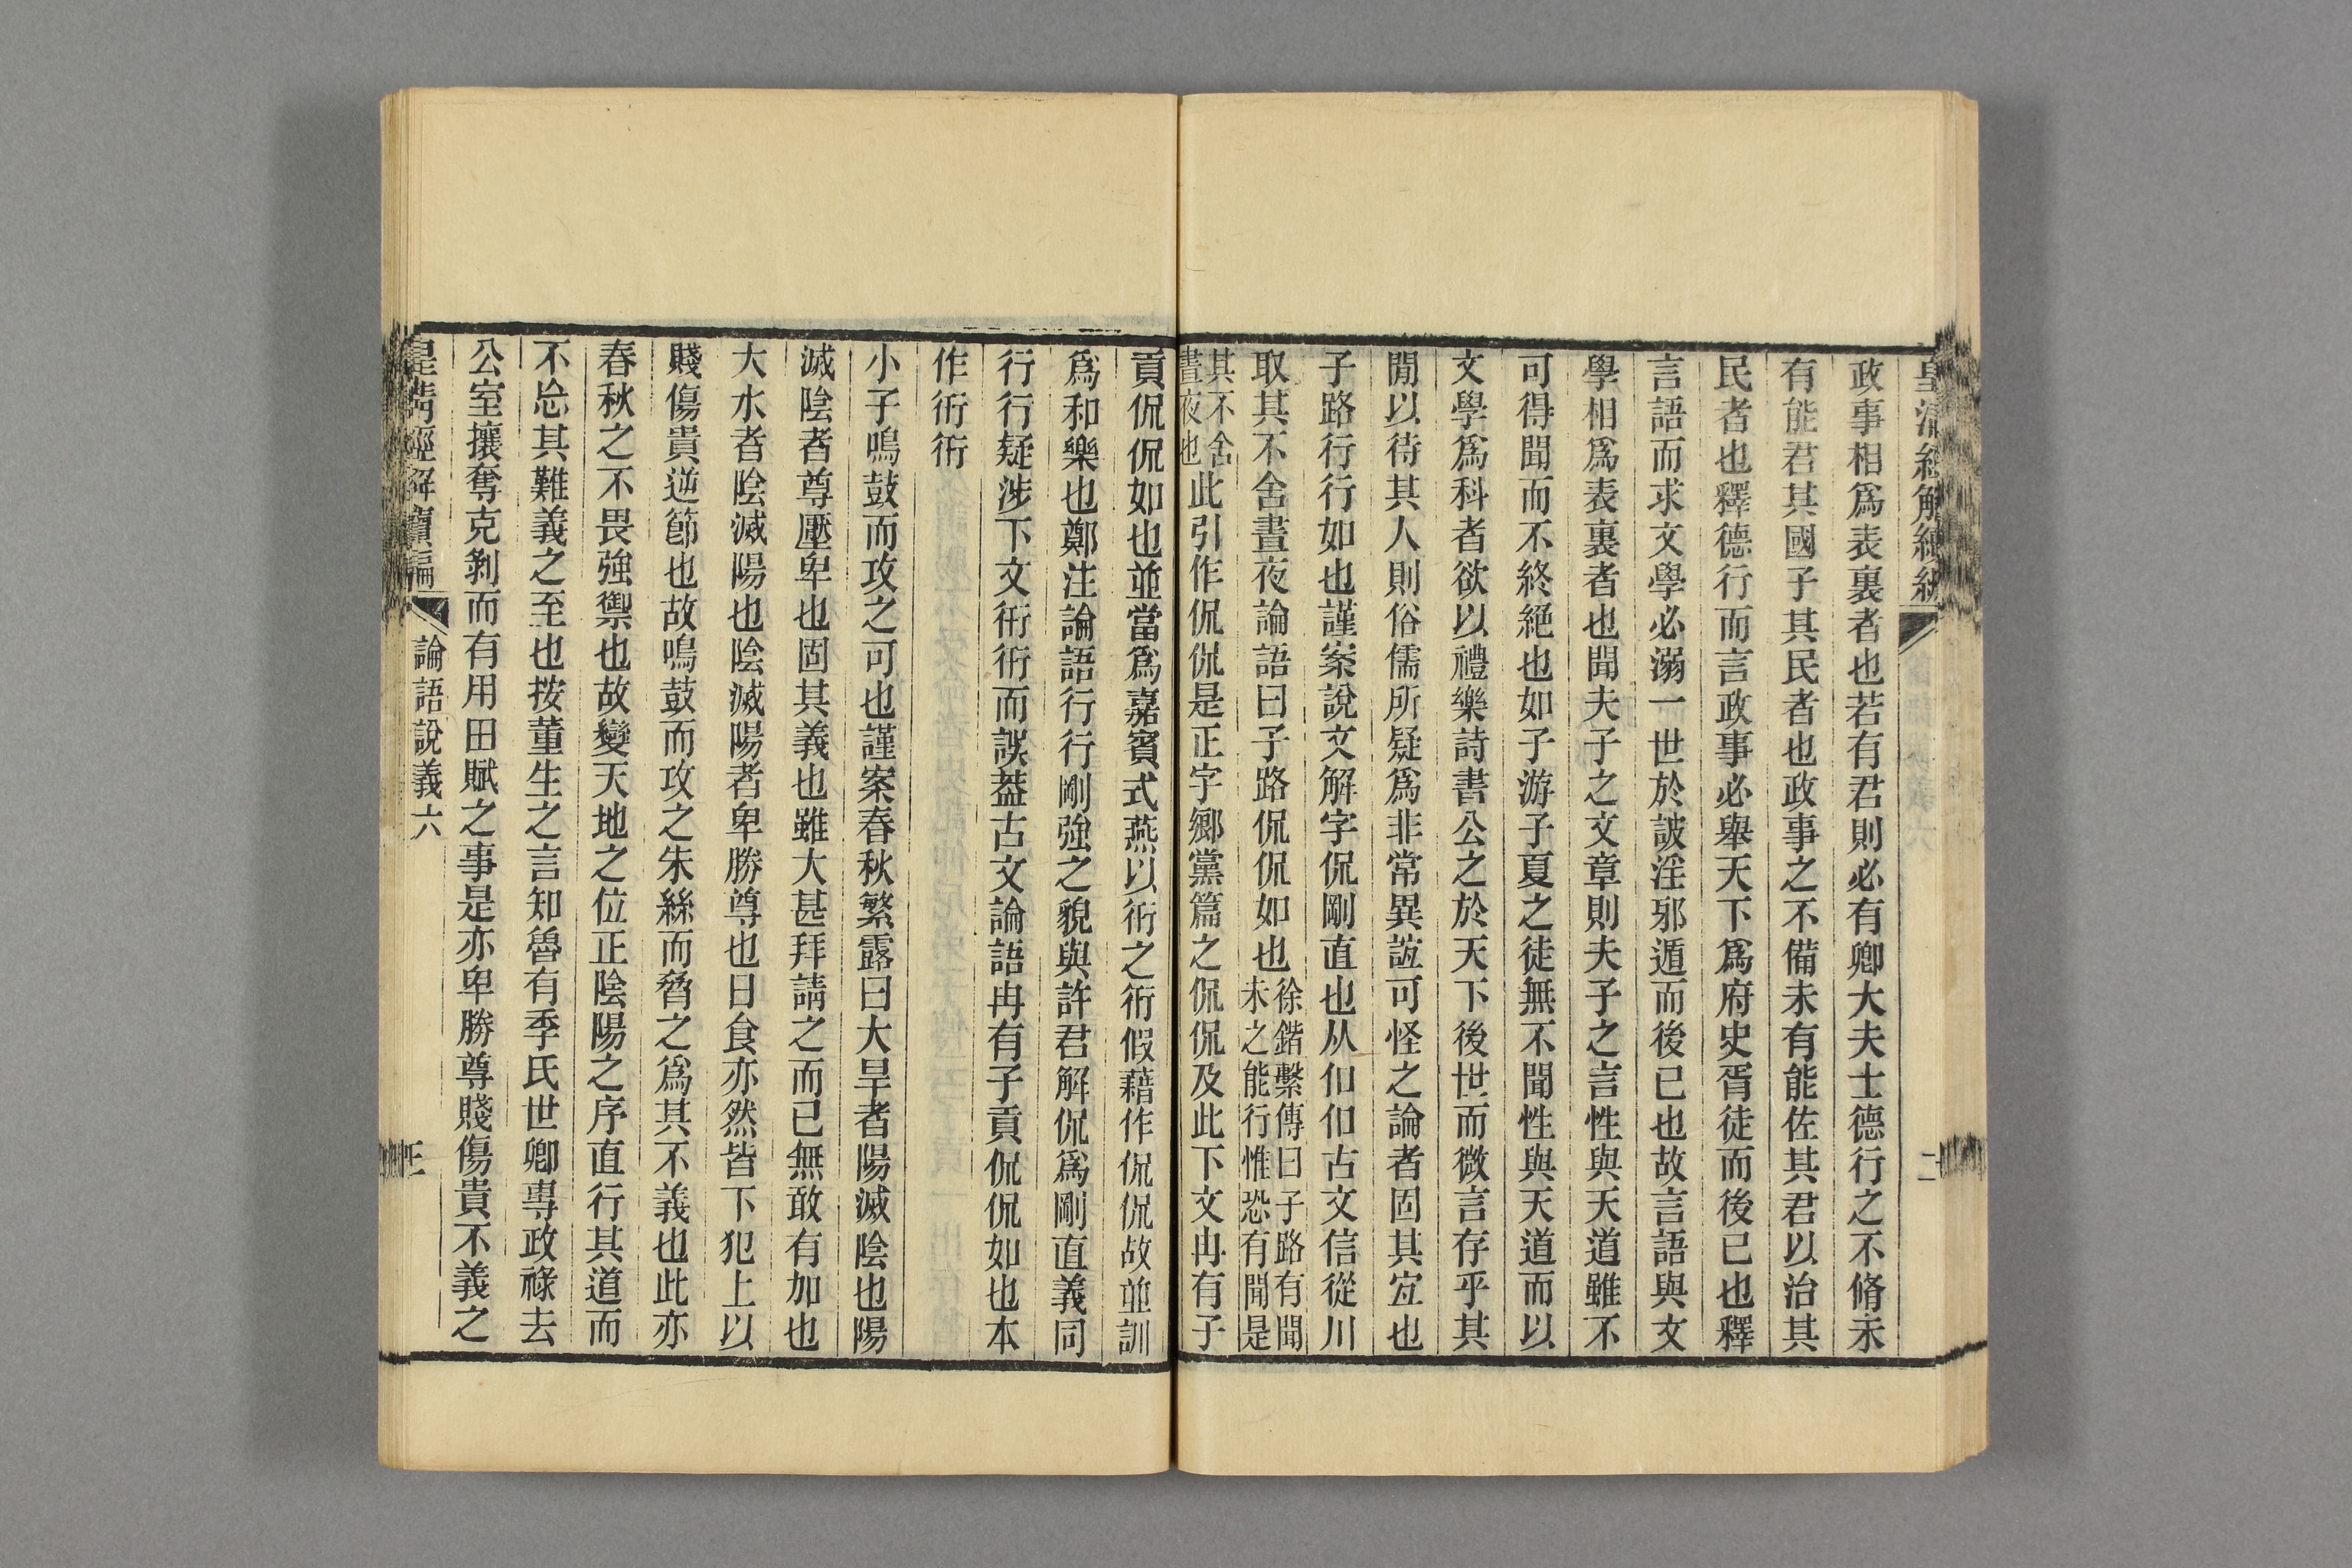 皇清經解續編
二
政事相爲表裏者也若有君則必有卿大夫士德行之不脩未
有能君其國子其民者也政事之不備未有能佐其君以治其
民者也釋德行而言政事必舉天下爲府史胥徒而後已也釋
言語而求文學必溺一世於詖淫邪遁而後已也故言語與文
學相爲表裏者也聞夫子之文章則夫子之言性與天道雖不
可得聞而不終絕也如子游子夏之徒無不聞性與天道而以
文學爲科者欲以禮樂詩書公之於天下後世而微言存乎其
閒以待其人則俗儒所疑爲非常異誼可怪之論者固其宐也
子路行行如也謹案說文解字侃剛直也从㐰㐰古文信從川
取其不舍晝夜論語曰子路侃侃如也徐鍇繫傳曰子路有聞
未之能行惟恐有聞是
其不舍
晝夜也此引作侃侃是正字鄉黨篇之侃侃及此下文冉有子
貢侃侃如也並當爲嘉賓式燕以衎之衎假藉作侃侃故並訓
爲和樂也鄭注論語行行剛強之貌與許君解侃爲剛直義同
行行疑涉下文衎衎而誤葢古文論語冉有子貢侃侃如也本
作衎衎
小子鳴鼓而攻之可也謹案春秋繁露曰大旱者陽滅陰也陽
滅陰者尊壓卑也固其義也雖大甚拜請之而已無敢有加也
大水者陰滅陽也陰滅陽者卑勝尊也日食亦然皆下犯上以
賤傷貴逆節也故鳴鼓而攻之朱絲而脅之爲其不義也此亦
春秋之不畏強禦也故變天地之位正陰陽之序直行其道而
不忩其難義之至也按董生之言知魯有季氏世卿專政祿去
公室攘奪克剝而有用田賦之事是亦卑勝尊賤傷貴不義之
皇清經解續編
論語說義六
三